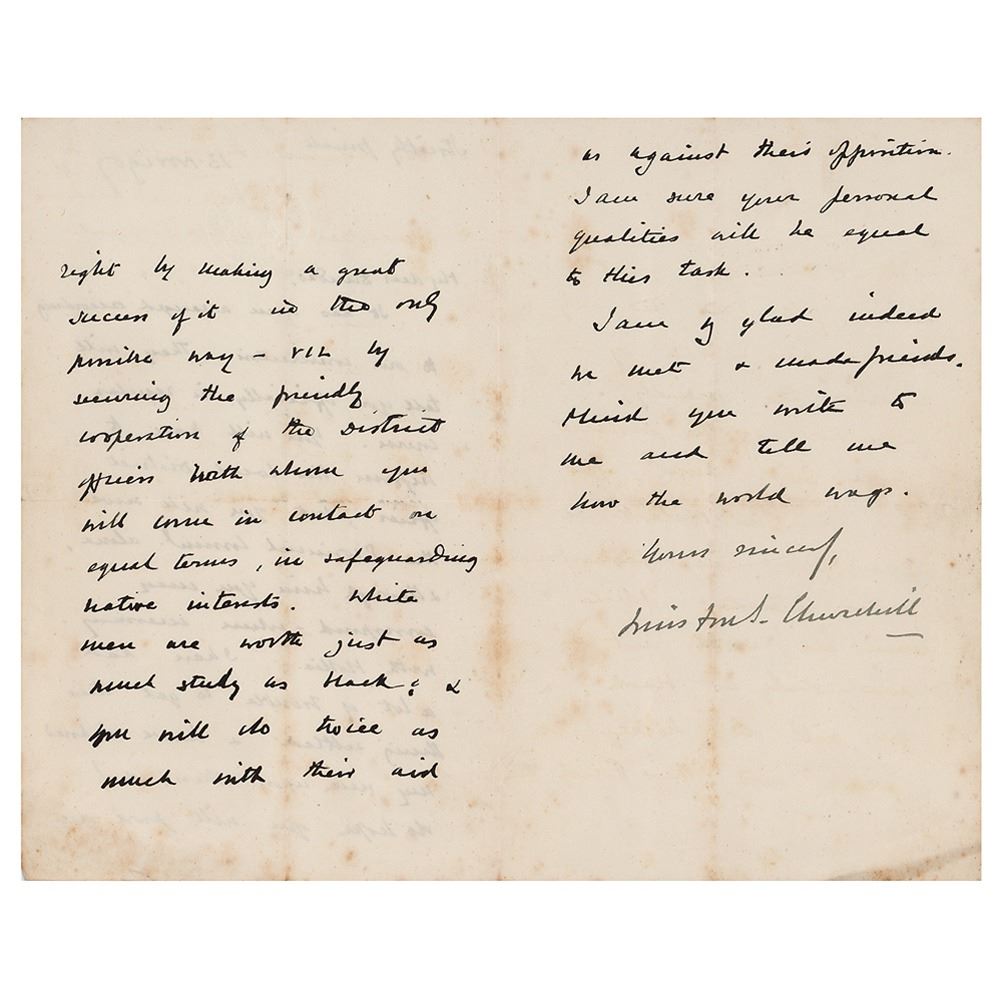 right by making a great
success of it in the only
possible way – viz by
securing the friendly
cooperation of the District
officers with whom you
will come in contact on
equal terms, in safeguarding
native interests. White
men are worth just as
much study as black; &
you will do twice as
much with their aid
as against their opposition.
I am sure your personal
qualities will be equal
to this task.
I am glad indeed
we met & made friends.
Mind you write to
me and tell me
how the world wags.
Yours sincerely,
Winston S. Churchill